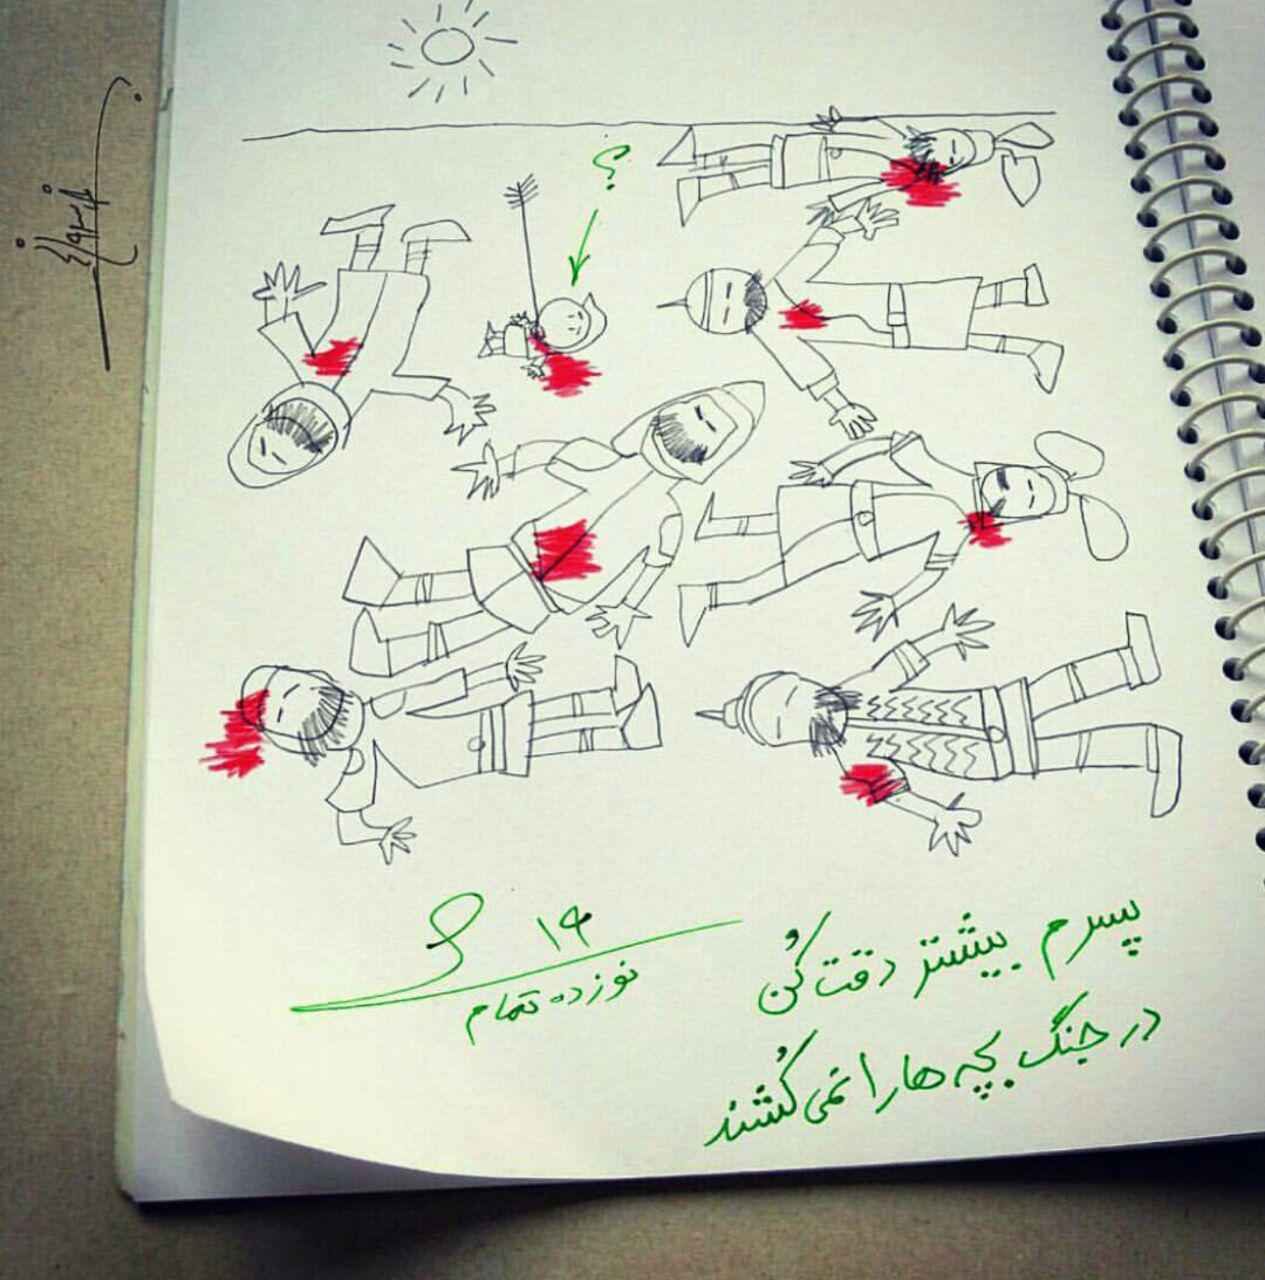 ؟
پسرم بیشتر دقت کُن
در جنگ بچه ها را نمی کُشند
۱۹
نوزده تمام